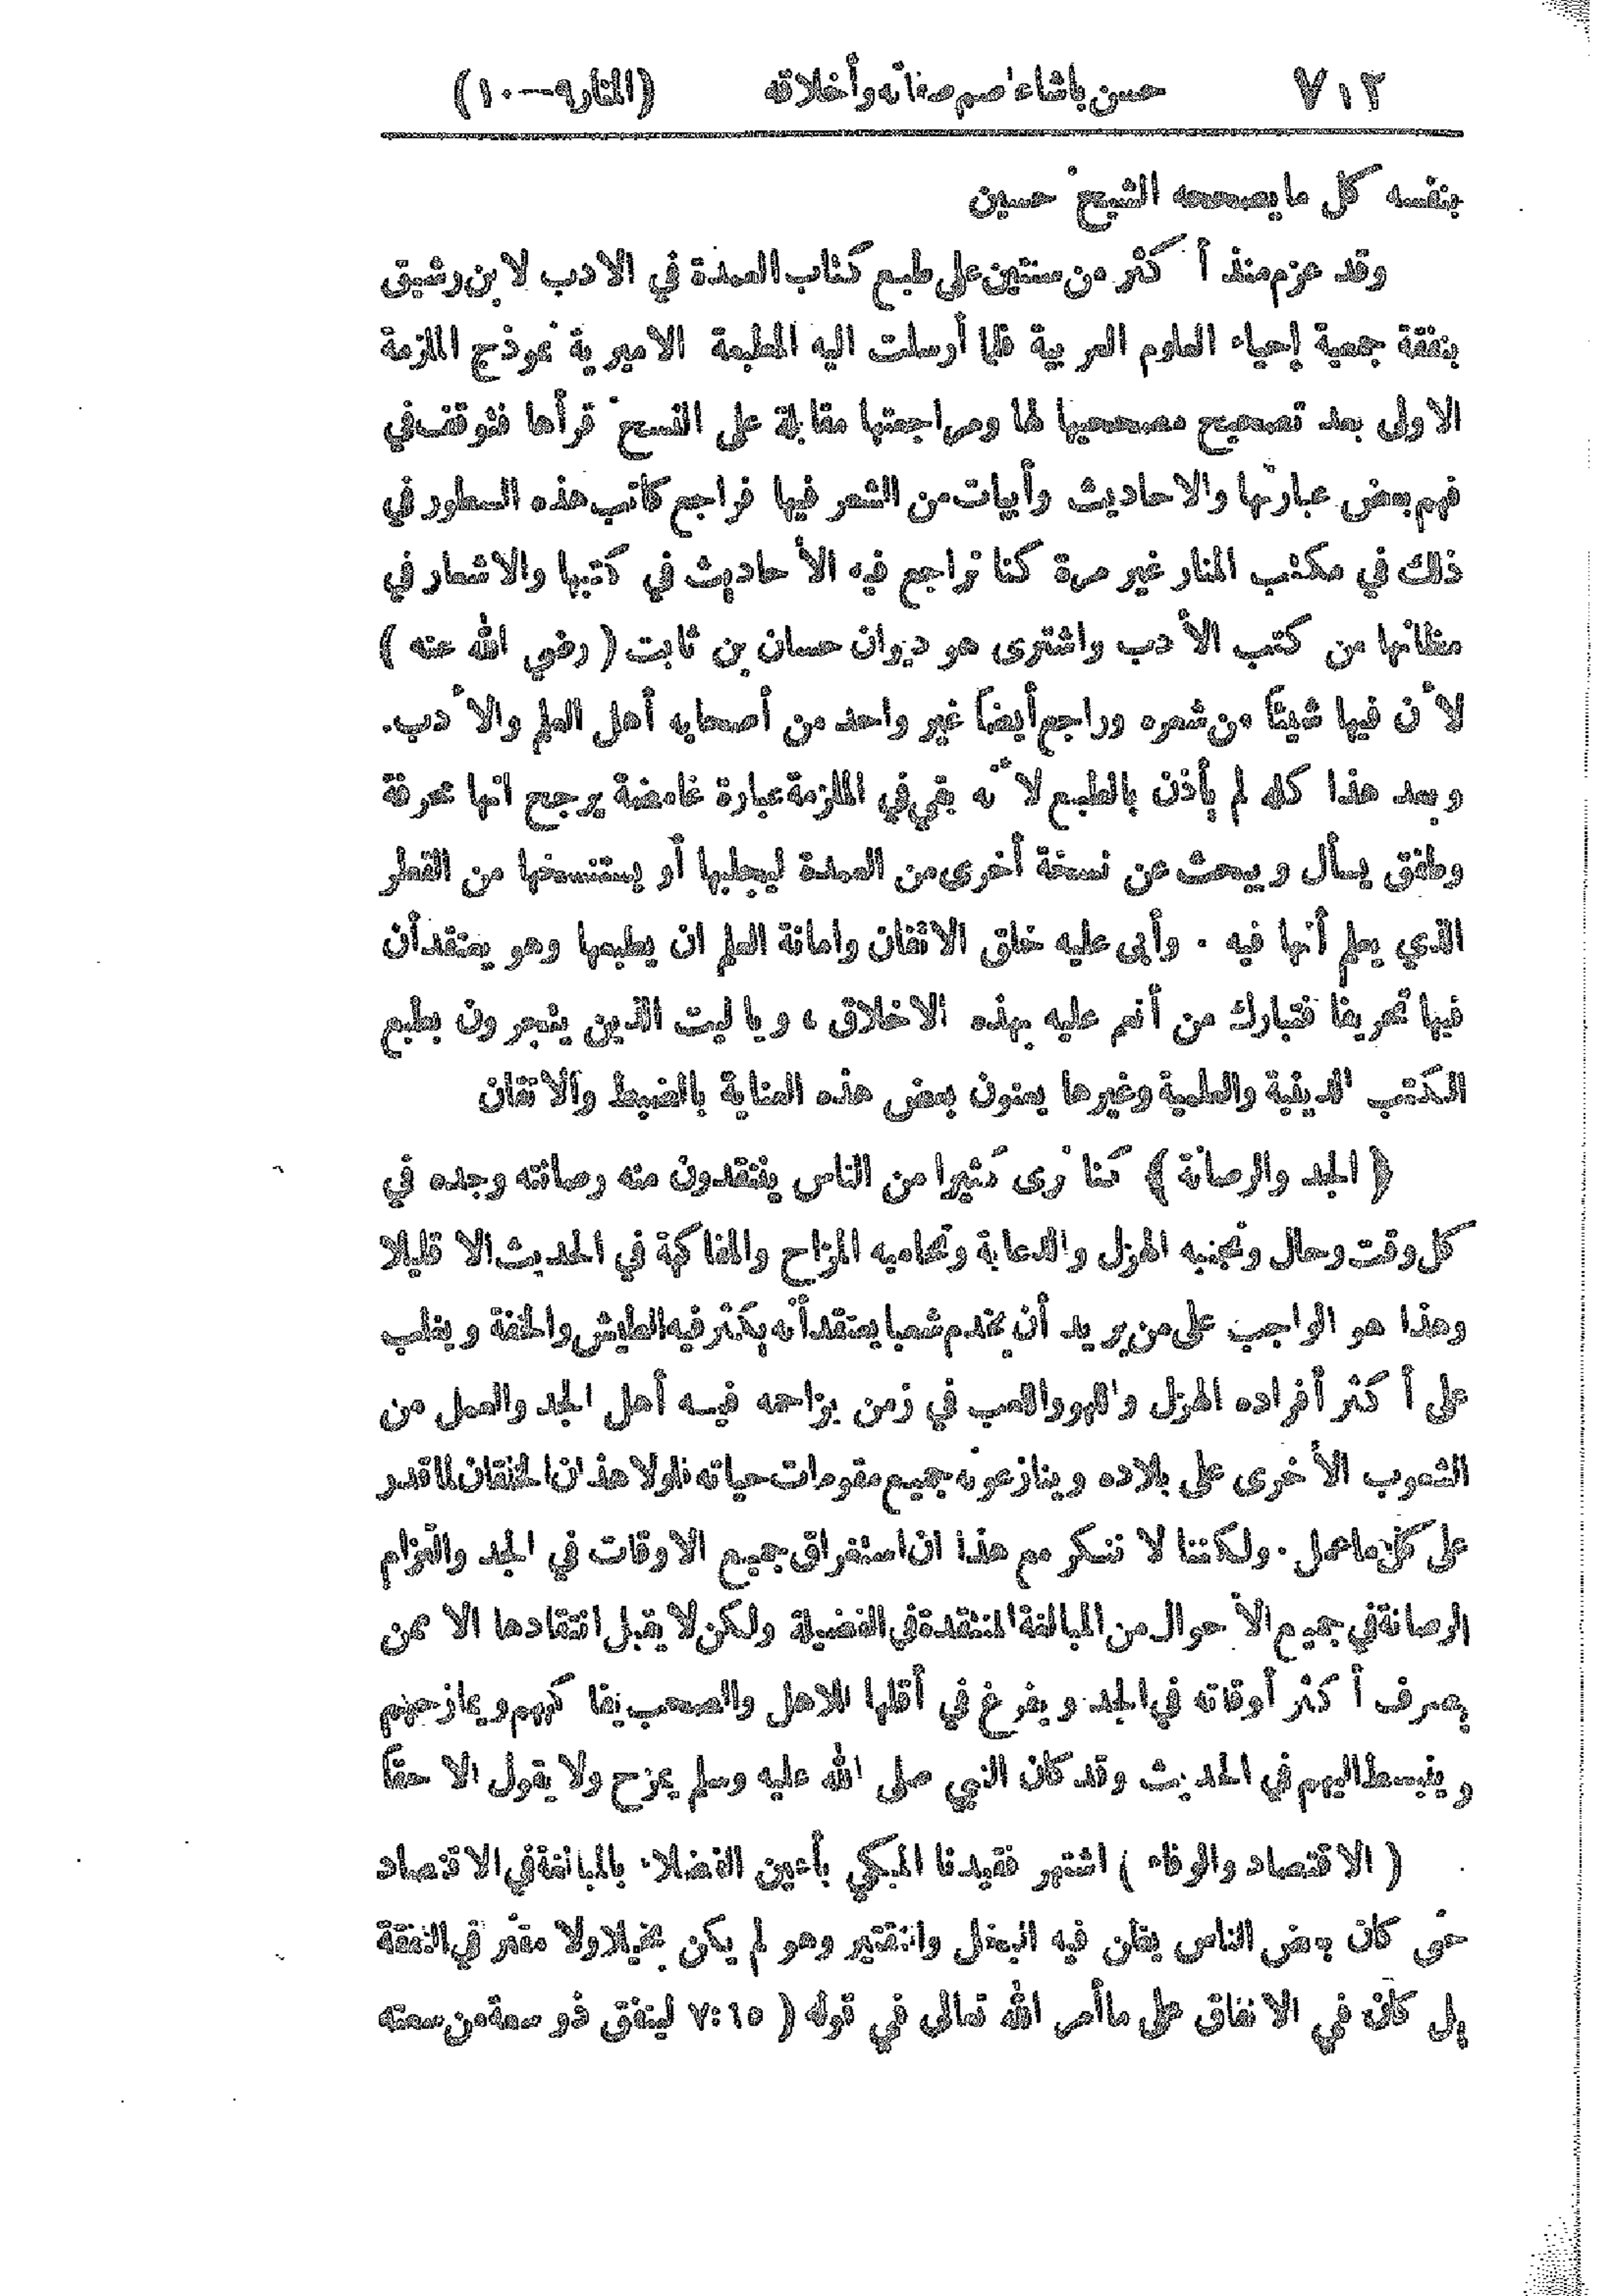 ٧١٢ حسن باشا عاصم صفاته وأخلاقه (المنار ٩—١٠)
بنفسه كل ما يصححه الشيخ حسين
وقد عزم منذ أكثر من سنتين على طبع كتاب العمدة في الادب لابن رشيق
بنفقة جمعية إحياء العلوم العربية فلما أرسلت اليه المطبعة الاميرية نموذج الملزمة
الاولى بعد تصحيح مصححيها لها ومراجعتها مقابلة على النسخ قرأها فتوقف في
فهم بعض عبارتها والاحاديث وأبيات من الشعر فيها فراجع كاتب هذه السطور في
ذلك في مكتب المنار غير مرة كنا نراجع فيه الأحاديث في كتبها والاشعار في
مظانها من كتب الأدب واشترى هو ديوان حسان بن ثابت ( رضي الله عنه )
لأن فيها شيئاً من شعره وراجع أيضاً غير واحد من أصحابه أهل العلم والأدب.
وبعد هذا كله لم يأذن بالطبع لأنه بقي في الملزمة عبارة غامضة يرجح انها محرفة
وطفق يسأل ويبحث عن نسخة أخرى من العمدة ليجلبها أو يستنسخها من القطر
الذي يعلم أنها فيه . وأبى عليه خلق الاتقان وامانة العلم ان يطبعها وهو يعتقد أن
فيها تحريفا فتبارك من أنعم عليه بهذه الاخلاق ، ويا ليت الذين يتجرون بطبع
الكتب الدينية والعلمية وغيرها يعنون بعض هذه العناية بالضبط والاتقان
﴿ الجد والرصانة ﴾ كنا نرى كثيرا من الناس ينتقدون منه رصانته وجده في
كل وقت وحال وتجنبه الهزل والدعابة وتحاميه المزاح والمفاكهة في الحديث الا قليلا
وهذا هو الواجب على من يريد أن يخدم شعبا يعتقد أنه يكثر فيه الطيش والخفة ويغلب
على أكثر أفراده الهزل واللهو واللعب في زمن يزاحمه فيه أهل الجد والعمل من
الشعوب الأخرى على بلاده وينازعونه جميع مقومات حياته فلولا هذان الخلقان لما قدر
على كل ما عمل . ولكننا لا ننكر مع هذا ان استغراق جميع الاوقات في الجد والتزام
الرصانة في جميع الأحوال من المبالغة المنتقدة في الفضيلة ولكن لا يقبل انتقادها الا ممن
يصرف أكثر أوقاته في الجد ويفرغ في أقلها للاهل والصحب يفاكههم ويمازحهم
وينبسط اليهم في الحديث وقد كان النبي صلى الله عليه وسلم يمزح ولا يقول الا حقاً
( الاقتصاد والوفاء ) اشتهر فقيدنا المبكي بأعين الفضلاء بالمبالغة في الاقتصاد
حتى كان بعض الناس يظن فيه البخل والتقتير وهو لم يكن بخيلا ولا مقتر في النفقة
بل كان في الانفاق على ما أمر الله تعالى في قوله ( ٦٥ : ٧ لينفق ذو سعة من سعته